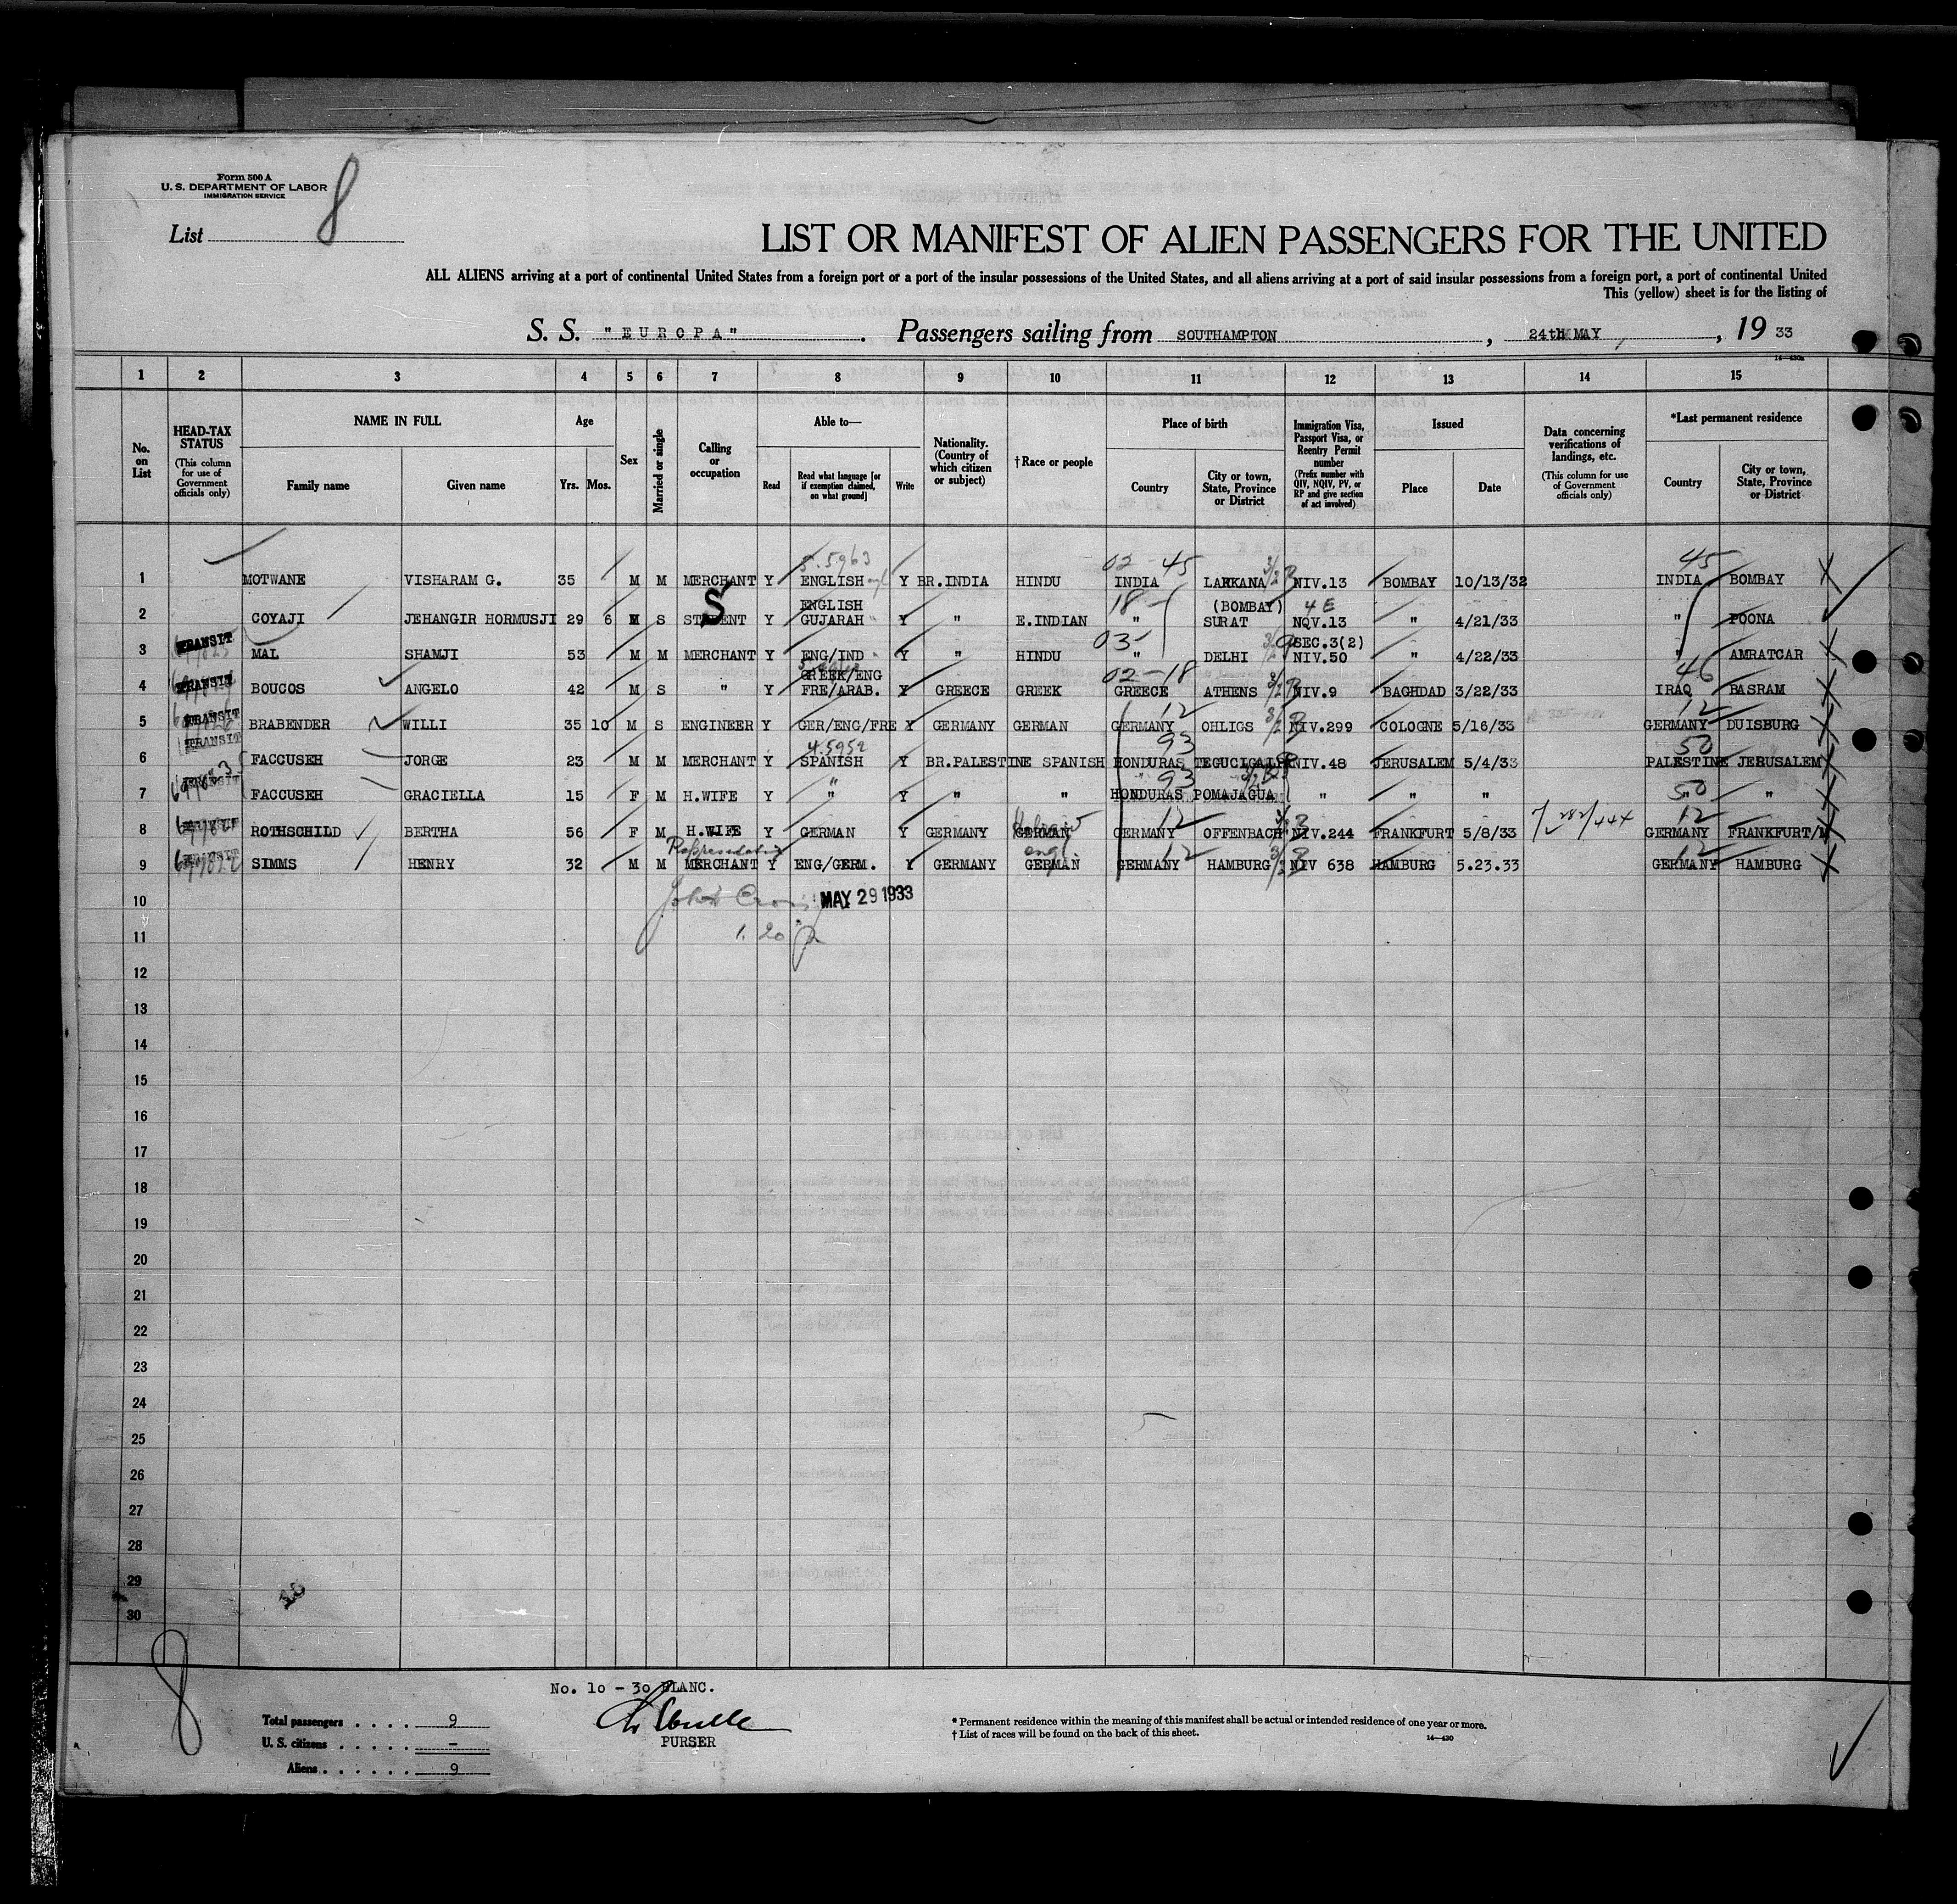 Form 500 A
U. S. DEPARTMENT OF LABOR
IMMIGRATION SERVICE
8
List
LIST OR MANIFEST OF ALIEN PASSENGERS FOR THE UNITED
ALL ALIENS arriving at a port of continental United States from a foreign port or a port of the insular possessions of the United States, and all aliens arriving at a port of said insular possessions from a foreign port, a port of continental United
This (yellow) sheet is for the listing of
S. S. "EUROPA". Passengers sailing from SOUTHAMPTON, 24th MAY, 19 33
1 2 3 4 5 6 7 8 9 10 11 12 13 14 15
No. on List
HEAD-TAX STATUS (This column for use of Government officials only)
NAME IN FULL Family name Given name
Age Yrs. Mos.
Sex
Married or single
Calling or occupation
Able to— Read Read what language [or if exemption claimed, on what ground] Write
Nationality. (Country of which citizen or subject)
†Race or people
Place of birth Country City or town, State, Province or District
Immigration Visa, Passport Visa, or Reentry Permit number (Prefix number with QIV, NQIV, PV, or RP and give section of act involved)
Issued Place Date
Data concerning verifications of landings, etc. (This column for use of Government officials only)
*Last permanent residence Country City or town, State, Province or District
5.5963 02-45 45
1 MOTWANE VISHARAM G. 35 M M MERCHANT Y ENGLISH Y BR.INDIA HINDU INDIA LARKANA NIV.13 BOMBAY 10/13/32 INDIA BOMBAY
S ENGLISH 18- (BOMBAY) 4 E
2 COYAJI JEHANGIR HORMUSJI 29 6 M S STUDENT Y GUJARAH Y " E.INDIAN " SURAT NQV.13 " 4/21/33 " POONA
TRANSIT 03- SEC.3(2)
3 MAL SHAMJI 53 M M MERCHANT Y ENG/IND Y " HINDU " DELHI NIV.50 " 4/22/33 " AMRATCAR
TRANSIT GREEK/ENG 02-18 46
4 BOUCOS ANGELO 42 M S " Y FRE/ARAB. Y GREECE GREEK GREECE ATHENS NIV.9 BAGHDAD 3/22/33 IRAQ BASRAM
TRANSIT 12 12
5 BRABENDER WILLI 35 10 M S ENGINEER Y GER/ENG/FRE Y GERMANY GERMAN GERMANY OHLIGS NIV.299 COLOGNE 5/16/33 GERMANY DUISBURG
TRANSIT 4.5952 93 50
6 FACCUSEH JORGE 23 M M MERCHANT Y SPANISH Y BR.PALESTINE SPANISH HONDURAS TEGUCIGALPA NIV.48 JERUSALEM 5/4/33 PALESTINE JERUSALEM
93
7 FACCUSEH GRACIELLA 15 F M H.WIFE Y " Y " " HONDURAS POMAJAGUA " " " 50 "
12 12
8 ROTHSCHILD BERTHA 56 F M H.WIFE Y GERMAN Y GERMANY GERMAN GERMANY OFFENBACH NIV.244 FRANKFURT 5/8/33 GERMANY FRANKFURT/M
Representative 12 12
9 SIMMS HENRY 32 M M MERCHANT Y ENG/GERM. Y GERMANY GERMAN GERMANY HAMBURG NIV 638 HAMBURG 5.23.33 GERMANY HAMBURG
10 MAY 29 1933
11 1.20
12
13
14
15
16
17
18
19
20
21
22
23
24
25
26
27
28
29
30
8
No. 10 - 30 BLANC.
PURSER
Total passengers . . . . 9
U. S. citizens . . . . . –
Aliens . . . . . . 9
* Permanent residence within the meaning of this manifest shall be actual or intended residence of one year or more.
† List of races will be found on the back of this sheet.
14—430